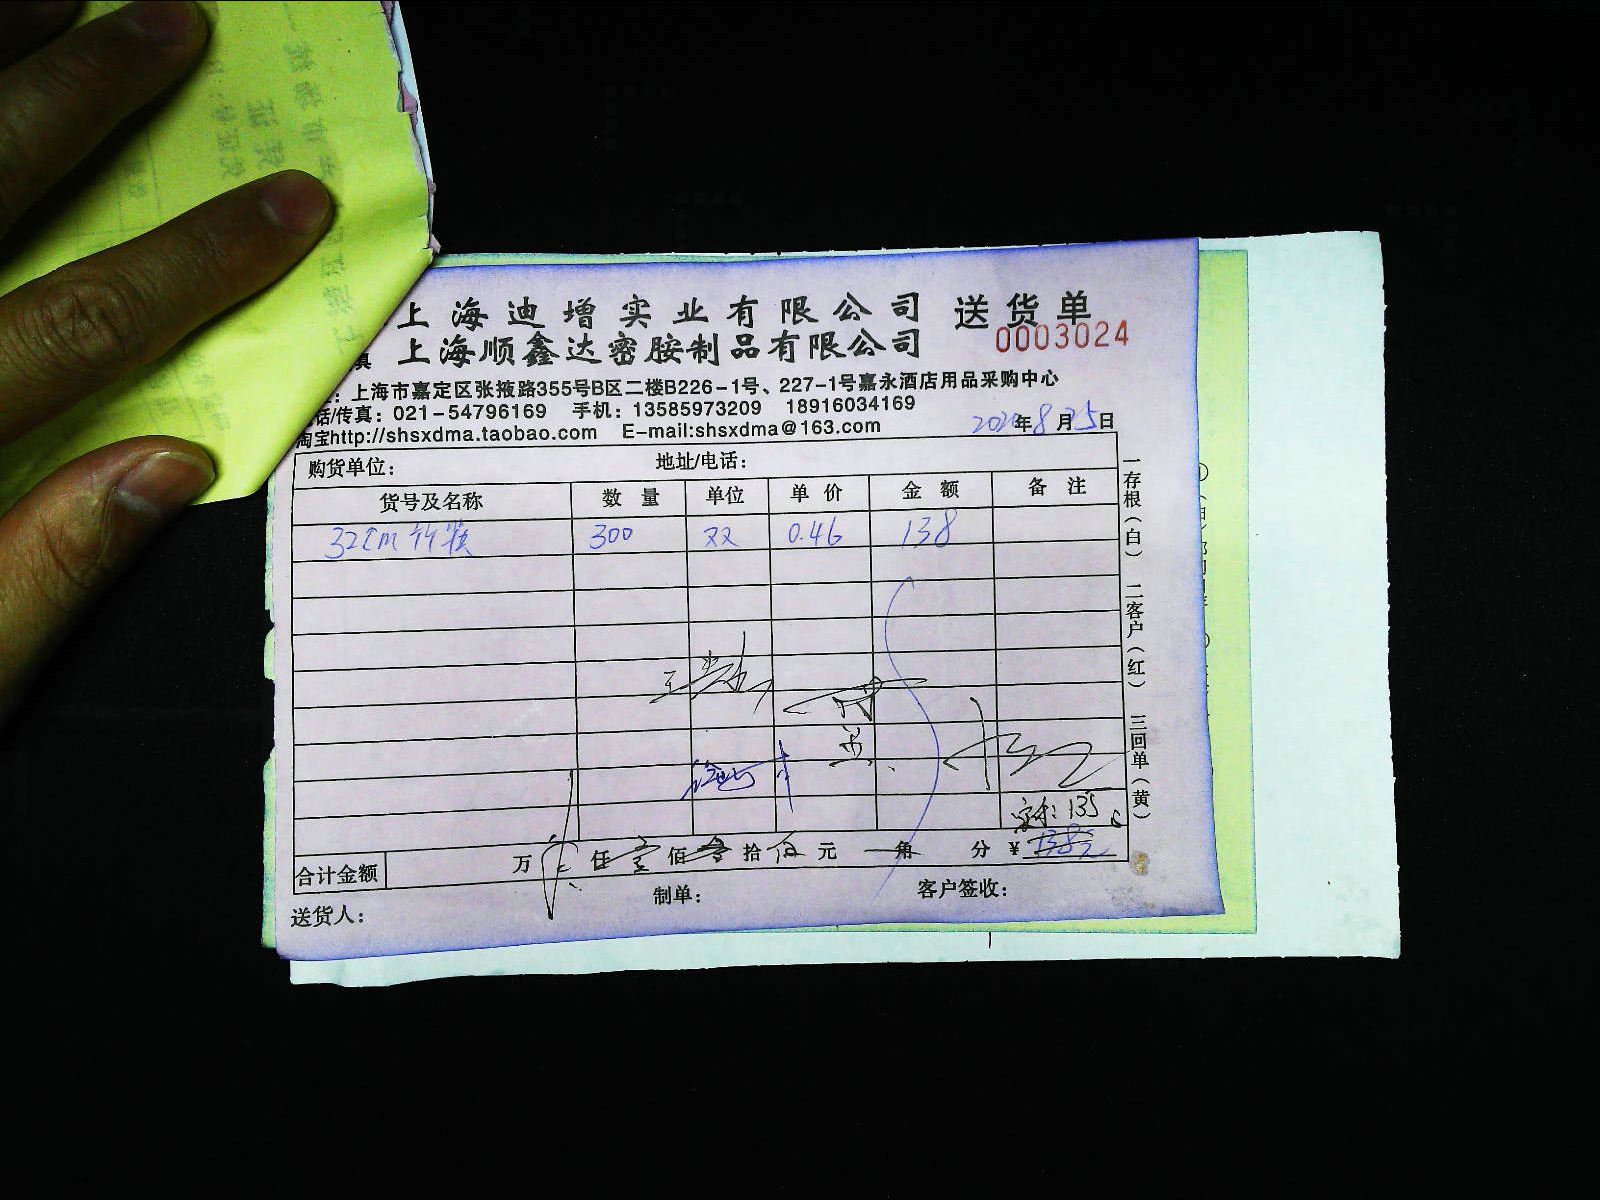 上海迪增实业有限公司 送货单
上海顺鑫达密胺制品有限公司 0003024
真
：上海市嘉定区张掖路355号B区二楼B226-1号、227-1号嘉永酒店用品采购中心
电话/传真：021-54796169 手机：13585973209 18916034169
淘宝http://shsxdma.taobao.com E-mail:shsxdma@163.com
年8月25日
购货单位： 地址/电话：
货号及名称 数量 单位 单价 金额 备注
32cm竹筷 300 双 0.46 138
实付：135
合计金额 万 仟壹佰叁拾伍元 角 分 ¥138元
送货人： 制单： 客户签收：
一存根（白） 二客户（红） 三回单（黄）